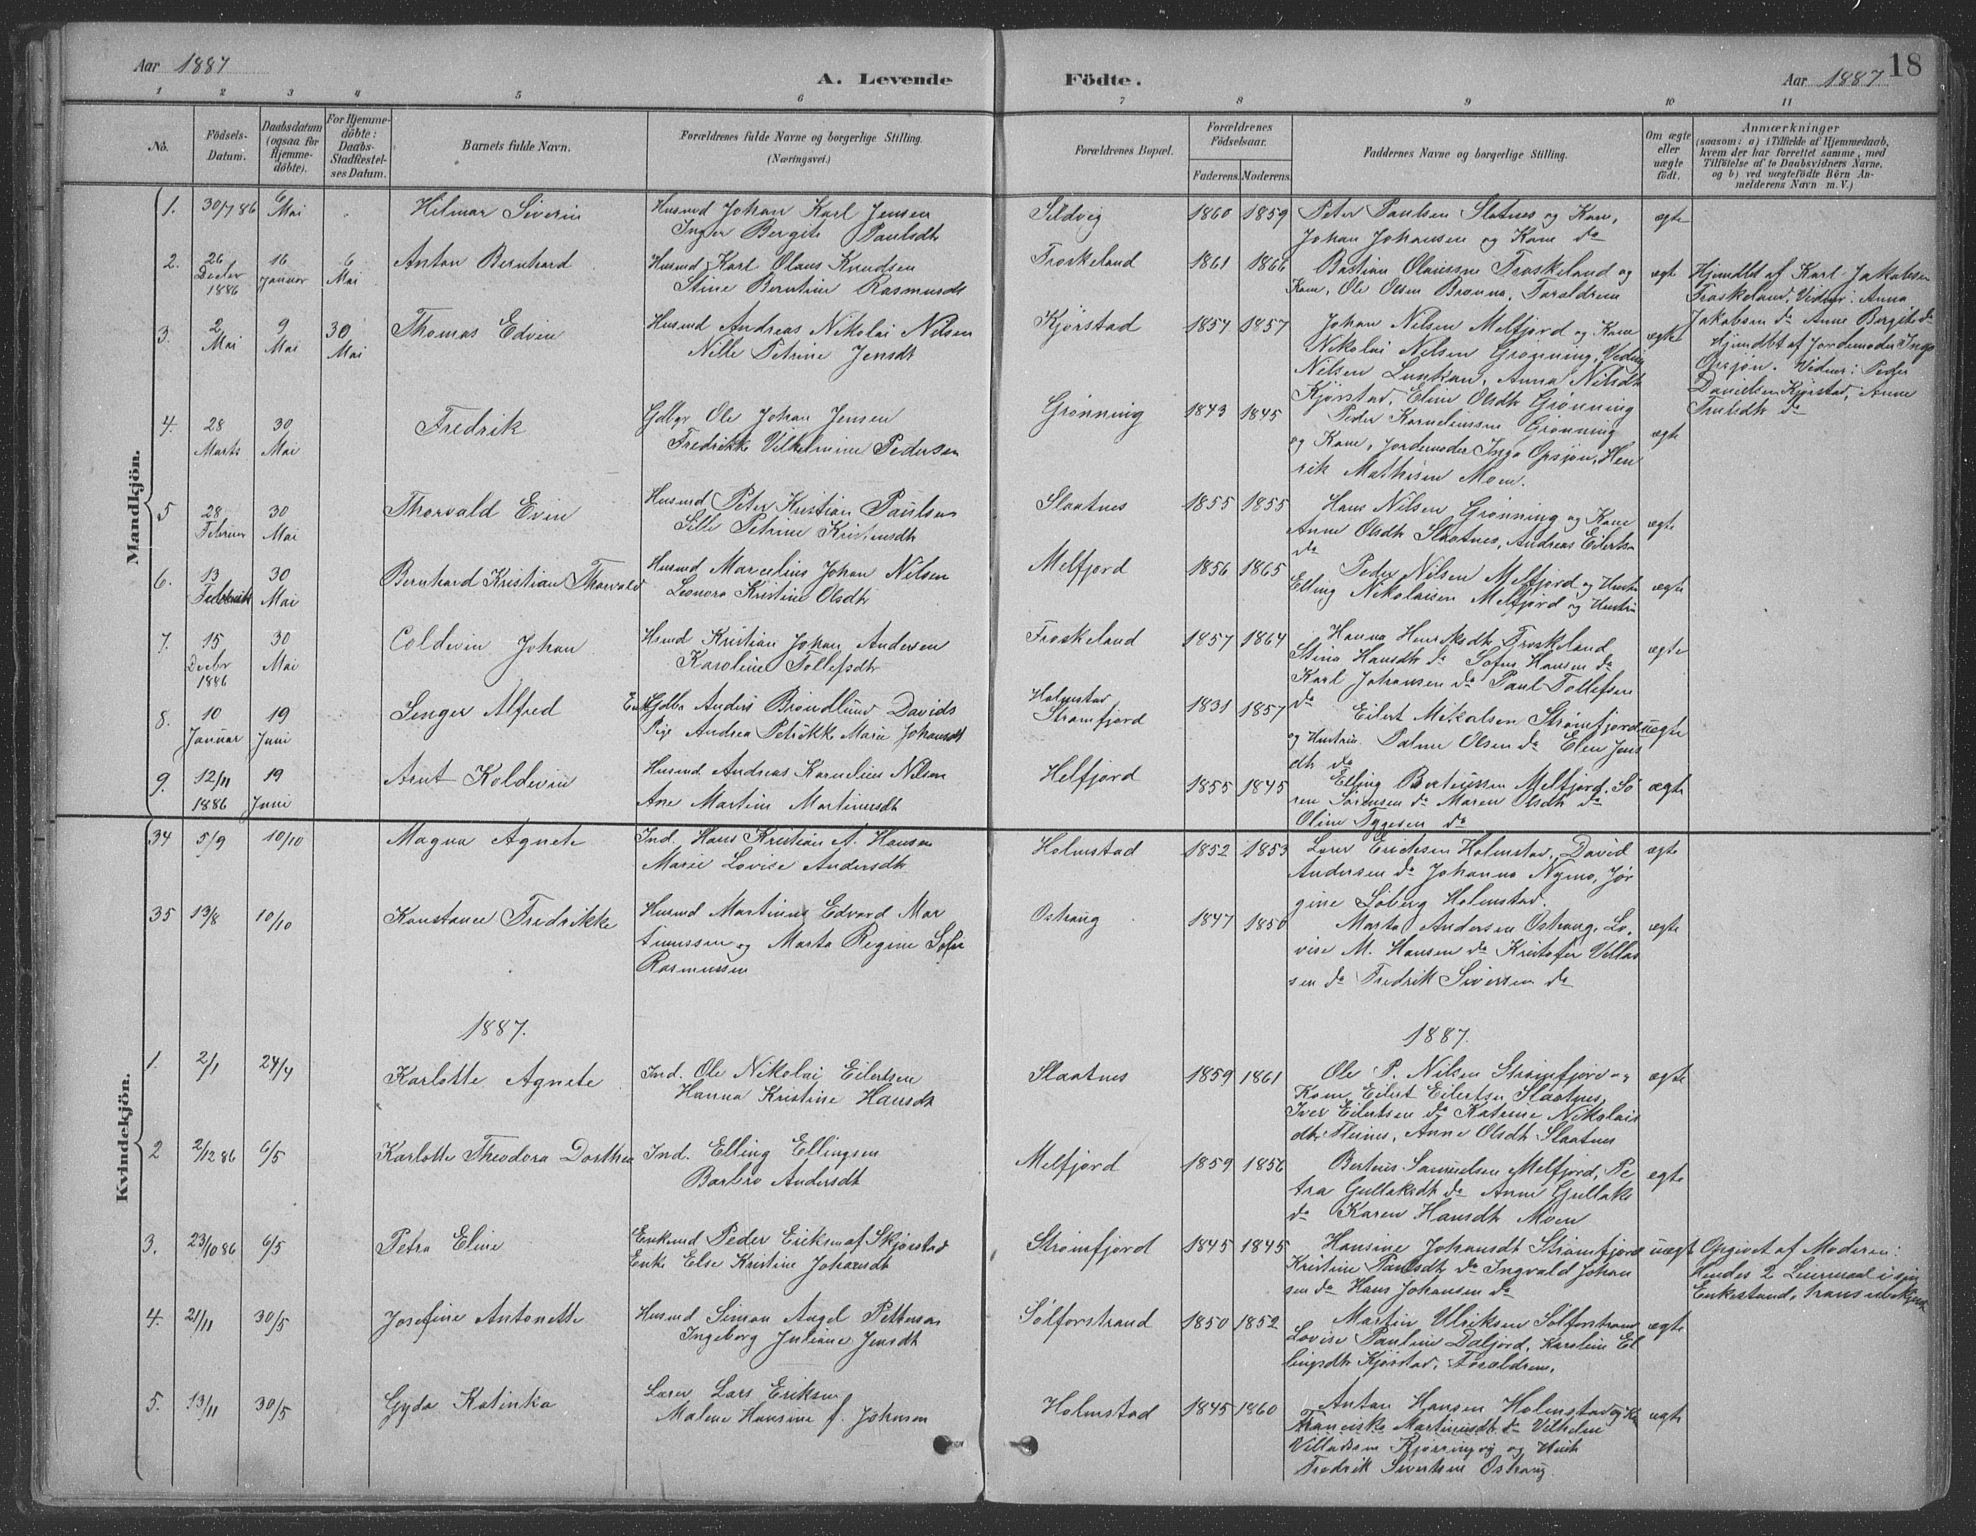 Aar 1887
A. Levende
Födte.
Aar 1887
18
1 2 3 4 5 6 7 8 9 10 11
No.
Födsels-Datum.
Daabsdatum (ogsaa for Hjemmedöbte).
For Hjemmedöbte: Daabs-Stadfæstelses Datum.
Barnets fulde Navn.
Forældrenes fulde Navne og borgerlige Stilling.
(Næringsvei.)
Forældrenes Bopæl.
Forældrenes Födselsaar.
Faderens. Moderens.
Faddernes Navne og borgerlige Stilling.
Om ægte eller uægte födt.
Anmærkninger
(saasom: a) i Tilfælde af Hjemmedaab, hvem der har forrettet samme, med Tilföielse af to Daabsvidners Navne, og b) ved uægtefödte Börn Anmelderens Navn m. V.)
Mandkjön.
1. 30/7 86 6 Mai Hilmar Siverin Husmd Johan Karl Jensen
Inger Bergite Paulsdtr
Sildvig 1860 1859 Peter Paulsen Slatnes og Kone,
Johan Johansen og Kone do
ægte
2. 26 Decbr 1886 16 Januar 6 Mai Anton Bernhard Husmd Karl Olaus Knudsen
Stine Berntine Rasmusdt
Froskeland 1861 1866 Bastian Olaussen Froskeland og
Kone, Ole Olsen Brønna, Forældrene
ægte Hjemdbt af Karl Jakobsen
Froskeland, Vidner: Anna
Jakobsen do Anne Bergite do
3. 2 Mai 9 Mai 30 Mai Thomas Edvin Husmd Andreas Nikolai Nilsen
Nille Petrine Jensdt
Kjørstad 1857 1857 Johan Nilsen Melfjord og Kone
Nikolai Nilsen Grønning,
Nilsen Lunkan, Anna Nilsdt
Kjørstad, Eline Olsdtr Grønning
ægte Hjemdbt af Jordemoder Inga
Opsjøn. Vidner: Peder
Danielsen Kjørstad, Anne
do
4. 28 Marts 30 Mai Fredrik Gdbgr Ole Johan Jensen
Fredrikke Vilhelmine Pedersen
Grønning 1843 1845 Peder Korneliussen Grønning
og Kone, Jordemoder Inga Opsjøn, Hen
rik Mathisen Moen.
ægte
5 28 Februar 30 Mai Thorvald Evin Husmd Peter Kristian Paulsen
Sille Petrine Kristensdtr
Slaatnes 1855 1855 Hans Nilsen Grønning og Kone
Anne Olsdtr Slaatnes, Andreas Eilertsn
do
ægte
6. 13 30 Mai Bernhard Kristian Thorvald Husmd Marcelius Johan Nilsen
Leonora Kristine Olsdtr
Melfjord 1856 1865 Peder Nilsen Melfjord og Hustru
Elling Nikolaisen Melfjord og Hustru
ægte
7. 15 Decbr 1886 30 Mai Coldevin Johan Husmd Kristian Johan Andersen
Karoline Tollefsdtr
Froskeland 1857 1864 Hanna Henriksdtr Froskeland
Stina Hansdtr do Sofus Hansen do
Karl Johansen do Paul Tollefsen
do
ægte
8. 10 Januar 19 Juni Senger Alfred Anders Brøndlund Davids
Pige Andrea Petrikke Marie Johansdt
Holmstad
Strømfjord 1831 1857 Eilert Mikalsen Strømfjord
og Hustru. Palma Olsen do Elen Jens
dtr do
uægte
9. 12/11 1886 19 Juni Arnt Koldevin Husmd Andreas Kornelius Nilsen
Ane Martine Martinusdt
Melfjord 1855 1845 Elling Berteussen Melfjord, Sø
ren Sørensen do Maren Olsdtr do
Oline Tygesen do
ægte
Kvindekjön.
34 5/9 10/10 Magna Agnete Ind. Hans Kristian A. Hansen
Marie Lovise Andersdtr
Holmstad 1852 1853 Lærer Ericksen Holmstad, David
Andersen do Johanna Nymo, Jør
gine Søberg Holmstad.
ægte
35 13/8 10/10 Konstance Fredrikke Husmd Martinus Edvard Mar
tinussen og Marta Regine Sofie
Rasmussen
Ostrang 1847 1850 Marta Andersen Ostrang, Lo,
vise M. Hansen do Kristofer Villas
sen do Fredrik Siversen do
ægte
1887. 1887.
1. 2/1 24/4 Karlotte Agnete Ind. Ole Nikolai Eilertsen
Hanna Kristine Hansdt
Slaatnes 1859 1861 Ole P. Nilsen Strømfjord og
Kone, Eilert Eilertsn Slaatnes,
Iver Eilertsen do Katrine Nikolais
dtr Anne Olsdtr Slaatnes
ægte
2 2/12 86 6/5 Karlotte Theodora Dorthea Ind. Elling Ellingsen
Barbro Andersdt
Melfjord 1859 1856 Berteus Samuelsen Melfjord, Pe
tra Gullaksdt do Anne Gullaks
do Karen Hansdtr Moen
ægte
3. 23/10 86 6/5 Petra Eline Enkemd Peder Eriksn af Skjørstad
Enke Else Kristine Johansdt
Strømfjord 1845 1845 Hansine Johansdt Strømfjord
Kristine Paulsdtr do Ingvald Johan
sen do Hans Johansen do
uægt Opgivet af Moderen:
Hendes 2 Leiermaal i sin
Enkestand, hans
4. 21/11 30/5 Josefine Antonette Husmd Simon Angel Pettersen
Ingeborg Juliane Jensdt
Sølforstrand 1850 1852 Martin Ulriksen Sølforstrand
Lovise Pauline Daljord, Karoline El
lingsdtr Kjørstad, Forældrene,
ægte
5. 13/11 30/5 Gyda Katinka Lærer Lars Eriksen
Malene Hansine f. Johnsen
Holmstad 1845 1860 Anton Hansen Holmstad og Ko
Franciska Martinusdt do Vilhelm
Villadsen Kjørringvig og Hustr
Fredrik Sivertsen Ostrang.
ægte